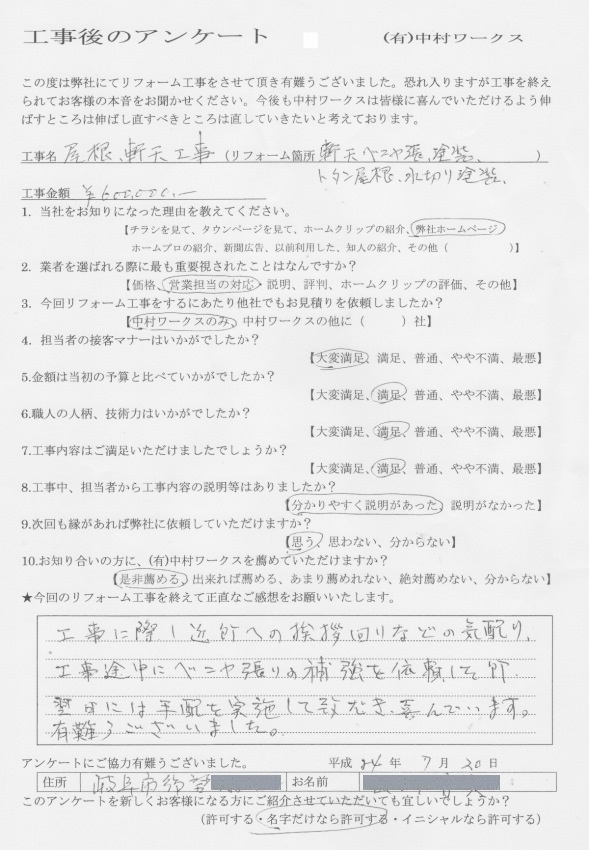 工事後のアンケート (有)中村ワークス
この度は弊社にてリフォーム工事をさせて頂き有難うございました。恐れ入りますが工事を終え
られてお客様の本音をお聞かせください。今後も中村ワークスは皆様に喜んでいただけるよう伸
ばすところは伸ばし直すべきところは直していきたいと考えております。
工事名 屋根、軒天工事 (リフォーム箇所 軒天ベニヤ張、塗装、 )
トタン屋根、水切り塗装、
工事金額 ¥600,000.—
1. 当社をお知りになった理由を教えてください。
【チラシを見て、タウンページを見て、ホームクリップの紹介、弊社ホームページ
ホームプロの紹介、新聞広告、以前利用した、知人の紹介、その他( )】
2. 業者を選ばれる際に最も重要視されたことはなんですか?
【価格、営業担当の対応・説明、評判、ホームクリップの評価、その他】
3. 今回リフォーム工事をするにあたり他社でもお見積りを依頼しましたか?
【中村ワークスのみ、中村ワークスの他に( )社】
4. 担当者の接客マナーはいかがでしたか?
【大変満足、満足、普通、やや不満、最悪】
5.金額は当初の予算と比べていかがでしたか?
【大変満足、満足、普通、やや不満、最悪】
6.職人の人柄、技術力はいかがでしたか?
【大変満足、満足、普通、やや不満、最悪】
7.工事内容はご満足いただけましたでしょうか?
【大変満足、満足、普通、やや不満、最悪】
8.工事中、担当者から工事内容の説明等はありましたか?
【分かりやすく説明があった、説明がなかった】
9.次回も縁があれば弊社に依頼していただけますか?
【思う、思わない、分からない】
10.お知り合いの方に、(有)中村ワークスを薦めていただけますか?
【是非薦める、出来れば薦める、あまり薦めれない、絶対薦めない、分からない】
★今回のリフォーム工事を終えて正直なご感想をお願いいたします。
工事に際し近所への挨拶回りなどの気配り、
工事途中にベニヤ張りの補強を依頼した所
翌日には手配を実施して致だき、喜んでいます。
有難うございました。
アンケートにご協力有難うございました。 平成 24 年 7 月 20 日
住所 岐阜市 お名前
このアンケートを新しくお客様になる方にご紹介させていただいても宜しいでしょうか?
(許可する・名字だけなら許可する・イニシャルなら許可する)